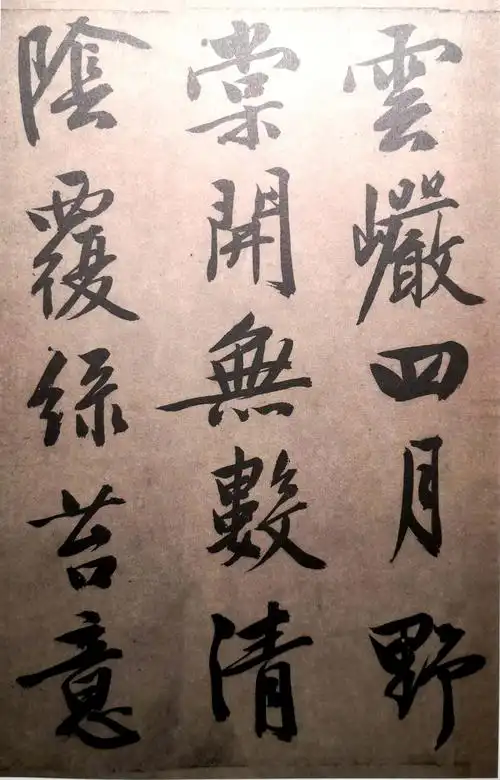 雲巖四月野
棠開無數清
陰覆綠苔意